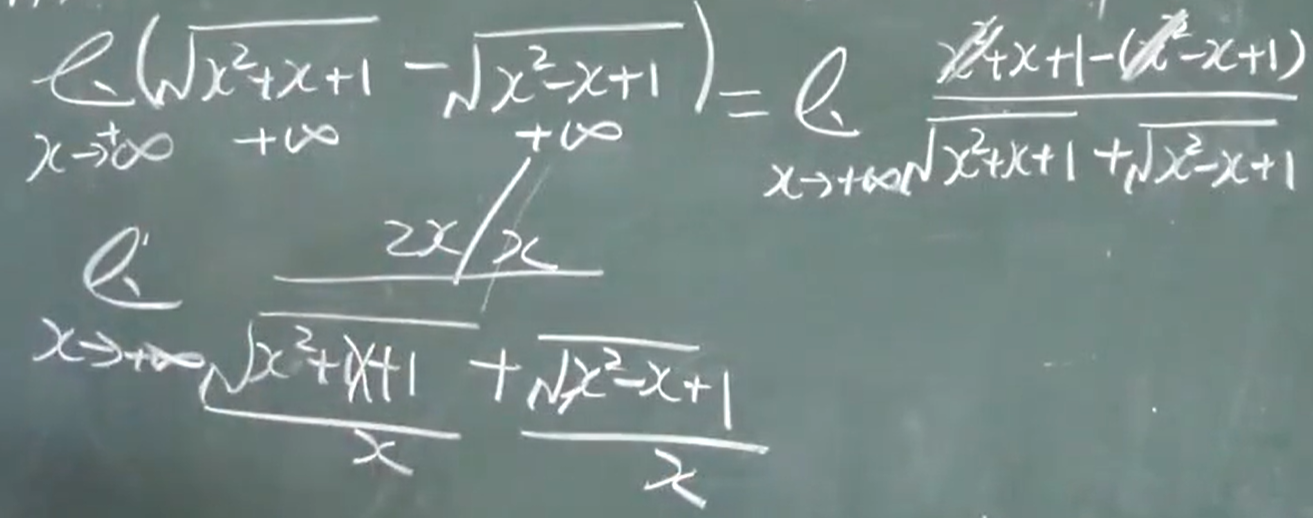 lim(√(x²+x+1) - √(x²-x+1)) = lim (x²+x+1-(x²-x+1))/(√(x²+x+1) + √(x²-x+1))
x→+∞ +∞ +∞ x→+∞
lim (2x/x)/(√(x²+x+1)/x + √(x²-x+1)/x)
x→+∞